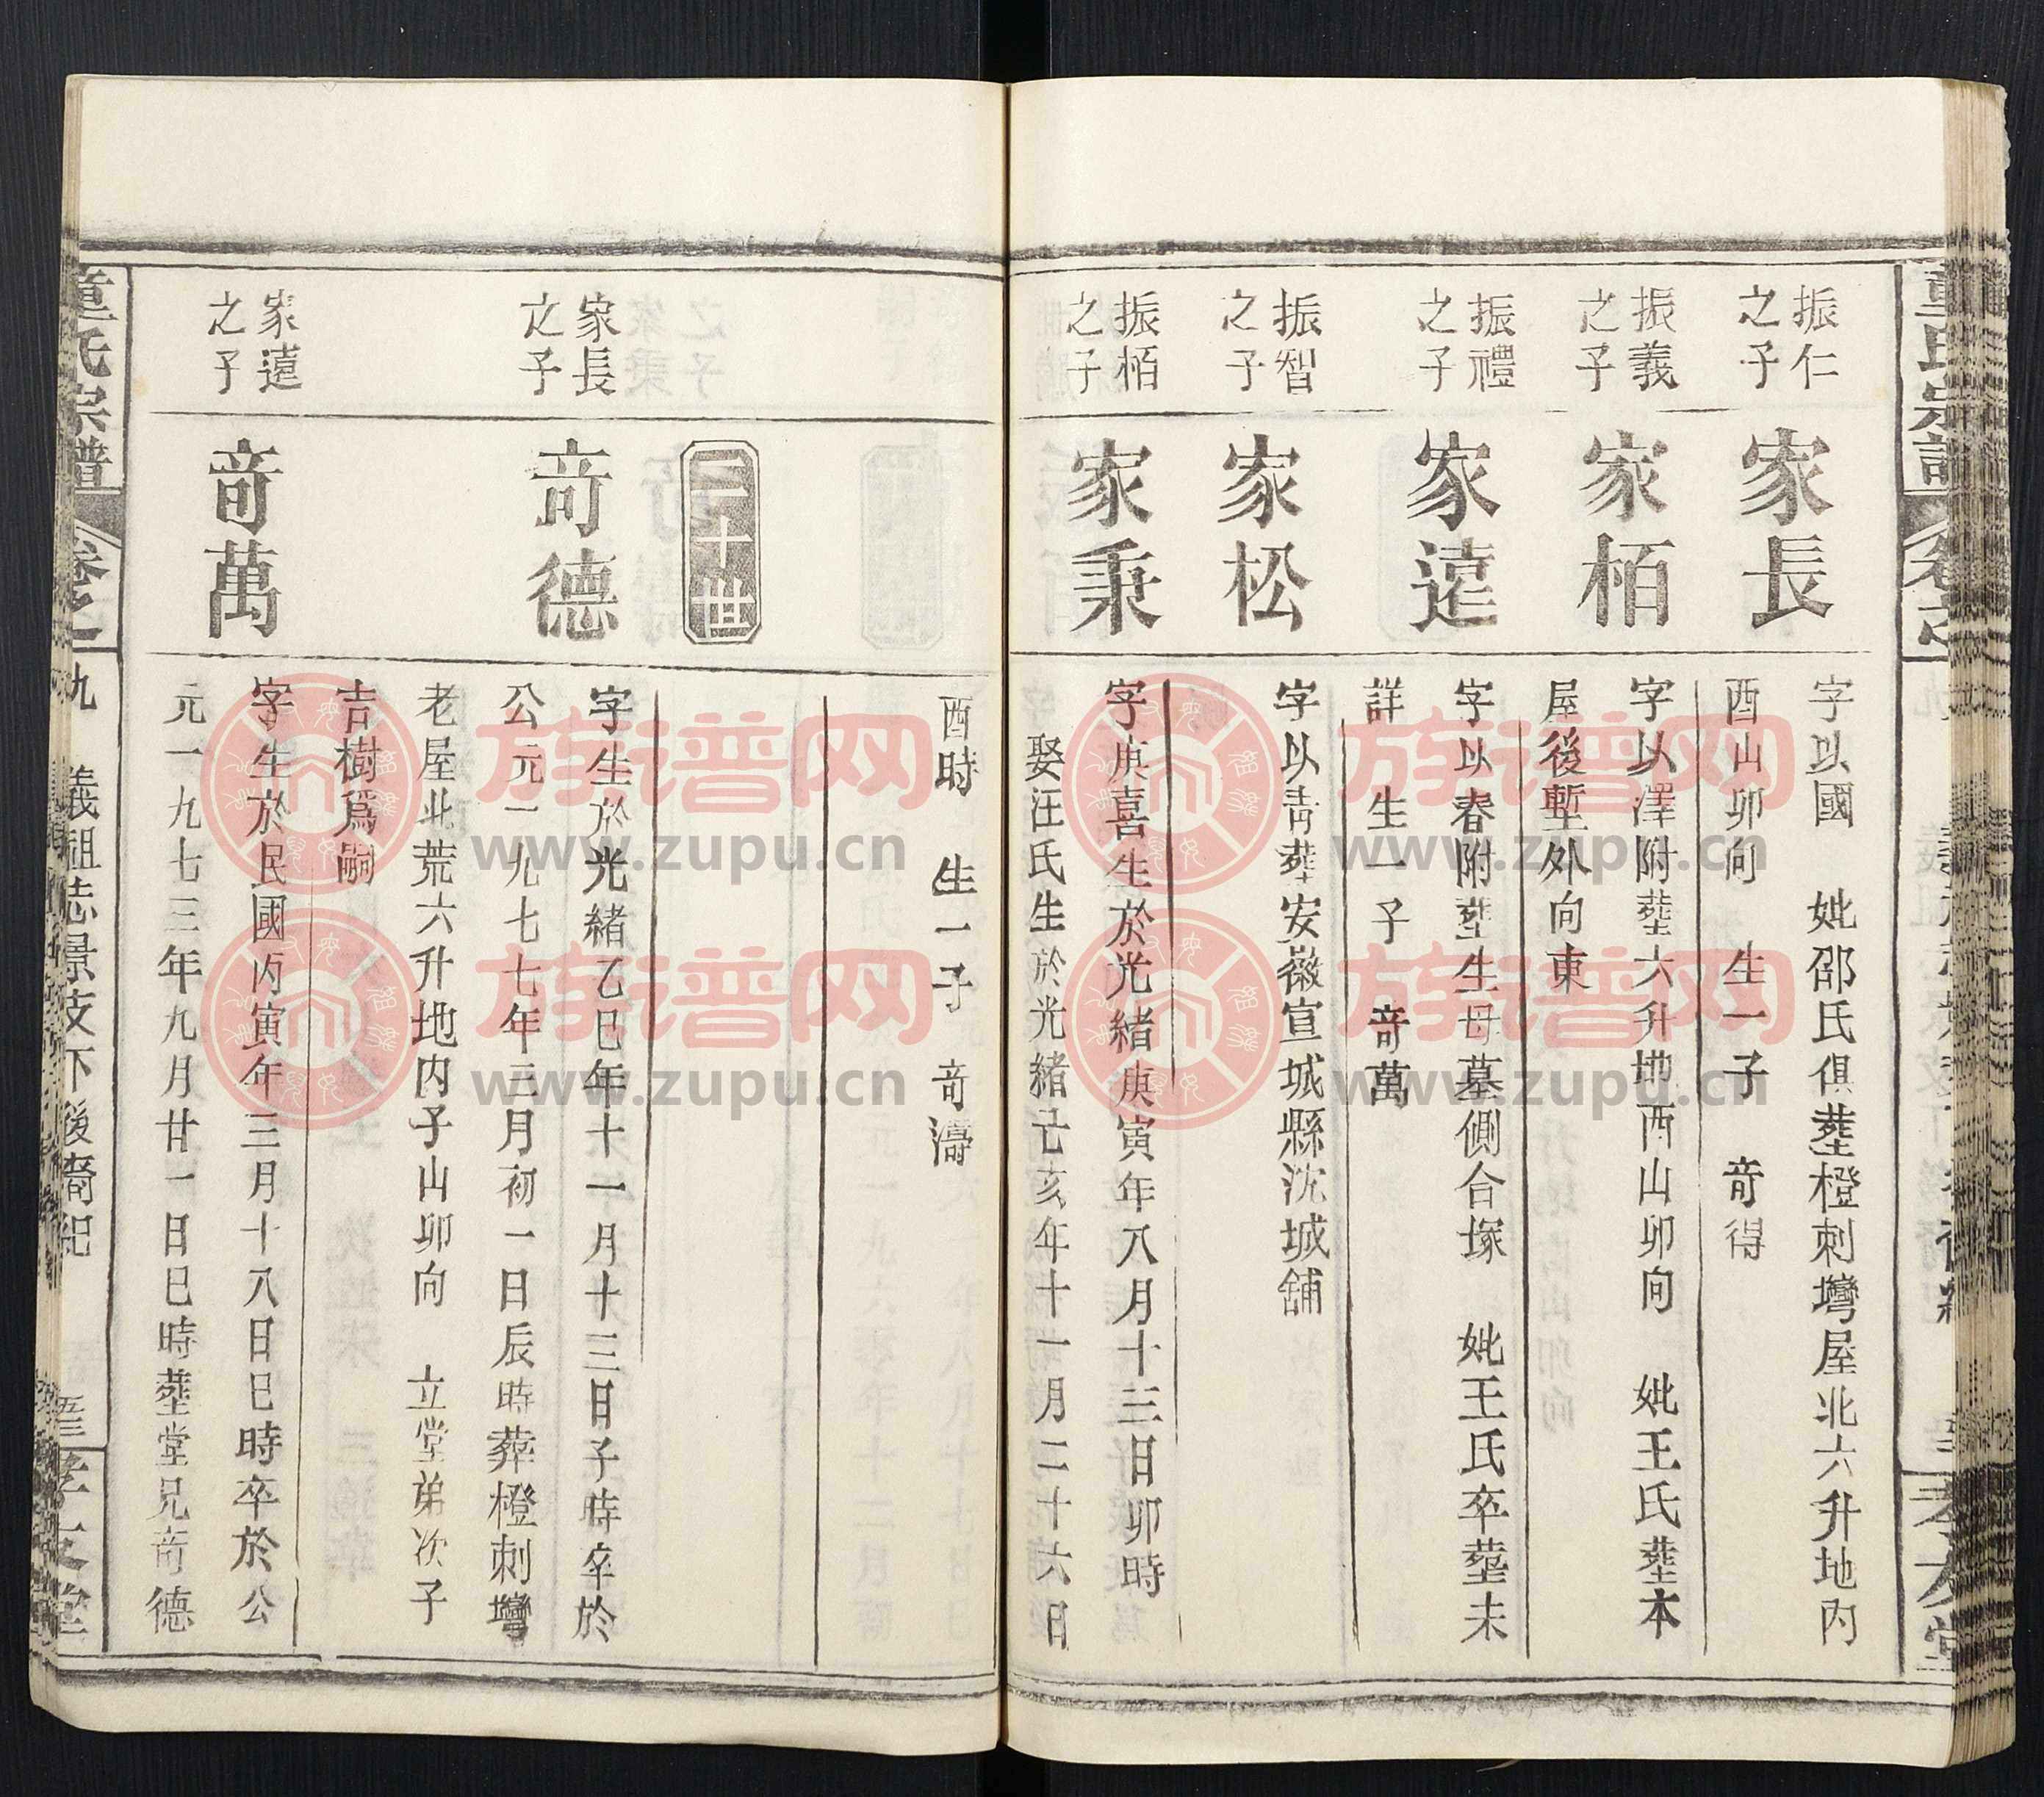 振仁
之子
家長
字以國　妣邵氏俱塟橙刺灣屋北六升地內
酉山卯向　生一子　竒得
振義
之子
家栢
字以澤附塟六升地酉山卯向　妣王氏塟本
屋後塹外向東
振禮
之子
家遠
字以春附塟生母墓側合塚　妣王氏卒塟未
詳　生一子　竒萬
振智
之子
家松
字以青塟安徽宣城縣沈城舖
振栢
之子
家秉
字庚喜生於光緒庚寅年八月十三日卯時
娶汪氏生於光緒己亥年十一月二十六日
酉時　生一子　竒濤
二十世
家長
之子
竒德
字生於光緒乙巳年十一月十三日子時卒於
公元一九七七年三月初一日辰時葬橙刺灣
老屋北荒六升地內子山卯向　立堂弟次子
吉樹爲嗣
家遠
之子
竒萬
字生於民國丙寅年三月十八日巳時卒於公
元一九七三年九月廿一日巳時塟堂兄竒德
童氏宗譜
卷之一
九　義祖志景支下後裔紀
孝友堂
族谱网
www.zupu.cn
族谱网
www.zupu.cn
族谱网
www.zupu.cn
族谱网
www.zupu.cn